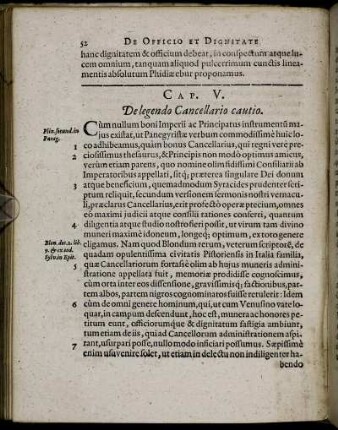 52 DE OFFICIO ET DIGNITATE
hanc dignitatem & officium debeat, in conspectum atque lu-
cem omnium, tanquam aliquod pulcerrimum cunctis linea-
mentis absolutum Phidiæ ebur proponamus.
CAP. V.
De legendo Cancellario cautio.
Cùm nullum boni Imperii ac Principatus instrumentũ ma-
Plin. secund. in Paneg.
jus existat, ut Panegyristæ verbum commodissimè huic lo-
1 co adhibeamus, quàm bonus Cancellarius, qui regni verè pre-
2 ciosissimus thesaurus, & Principis non modò optimus amicus,
verùm etiam parens, quo nomine olim fidissimi Consiliarii ab
Imperatoribus appellari, sitq; præterea singulare Dei donum
3 atque beneficium, quemadmodum Syracides prudenter scri-
ptum reliquit, secundum versionem sermonis nostri vernacu-
li, præclarus Cancellarius, erit profectò operæ precium, omnes
eo maximi judicii atque consilii rationes conferri, quantum
4 diligentia atque studio nostro fieri possit, ut virum tam divino
muneri maximè idoneum, longeq; optimum, ex toto genere
Blon. dec. 2. lib. 9. & ex eod. Sylv. in Epit.
eligamus. Nam quod Blondum rerum, veterum scriptorẽ, de
quadam opulentissima civitatis Pistoriensis in Italia familia,
5 quæ à Cancellariorum fortassè olim ab hujus muneris admini-
stratione appellata fuit, memoriæ prodidisse cognoscimus,
cùm orta inter eos dissensione, gravissimisq; factionibus, par-
tem albos, partem nigros cognominatos fuisse retulerit: Idem
6 cùm de omni genere hominum, qui, ut cum Venusino vate lo-
quar, in campum descendunt, hoc est, munera ac honores pe-
titum eunt, officiorumq́ue & dignitatum fastigia ambiunt,
tum etiam de iis, qui ad Cancellariorum administrationem aspi-
7 rant, usurpari posse, nullo modo insiciari possumus. Sæpissimè
enim usu venire solet, ut etiam in delectu non indiligenter ha-
bendo